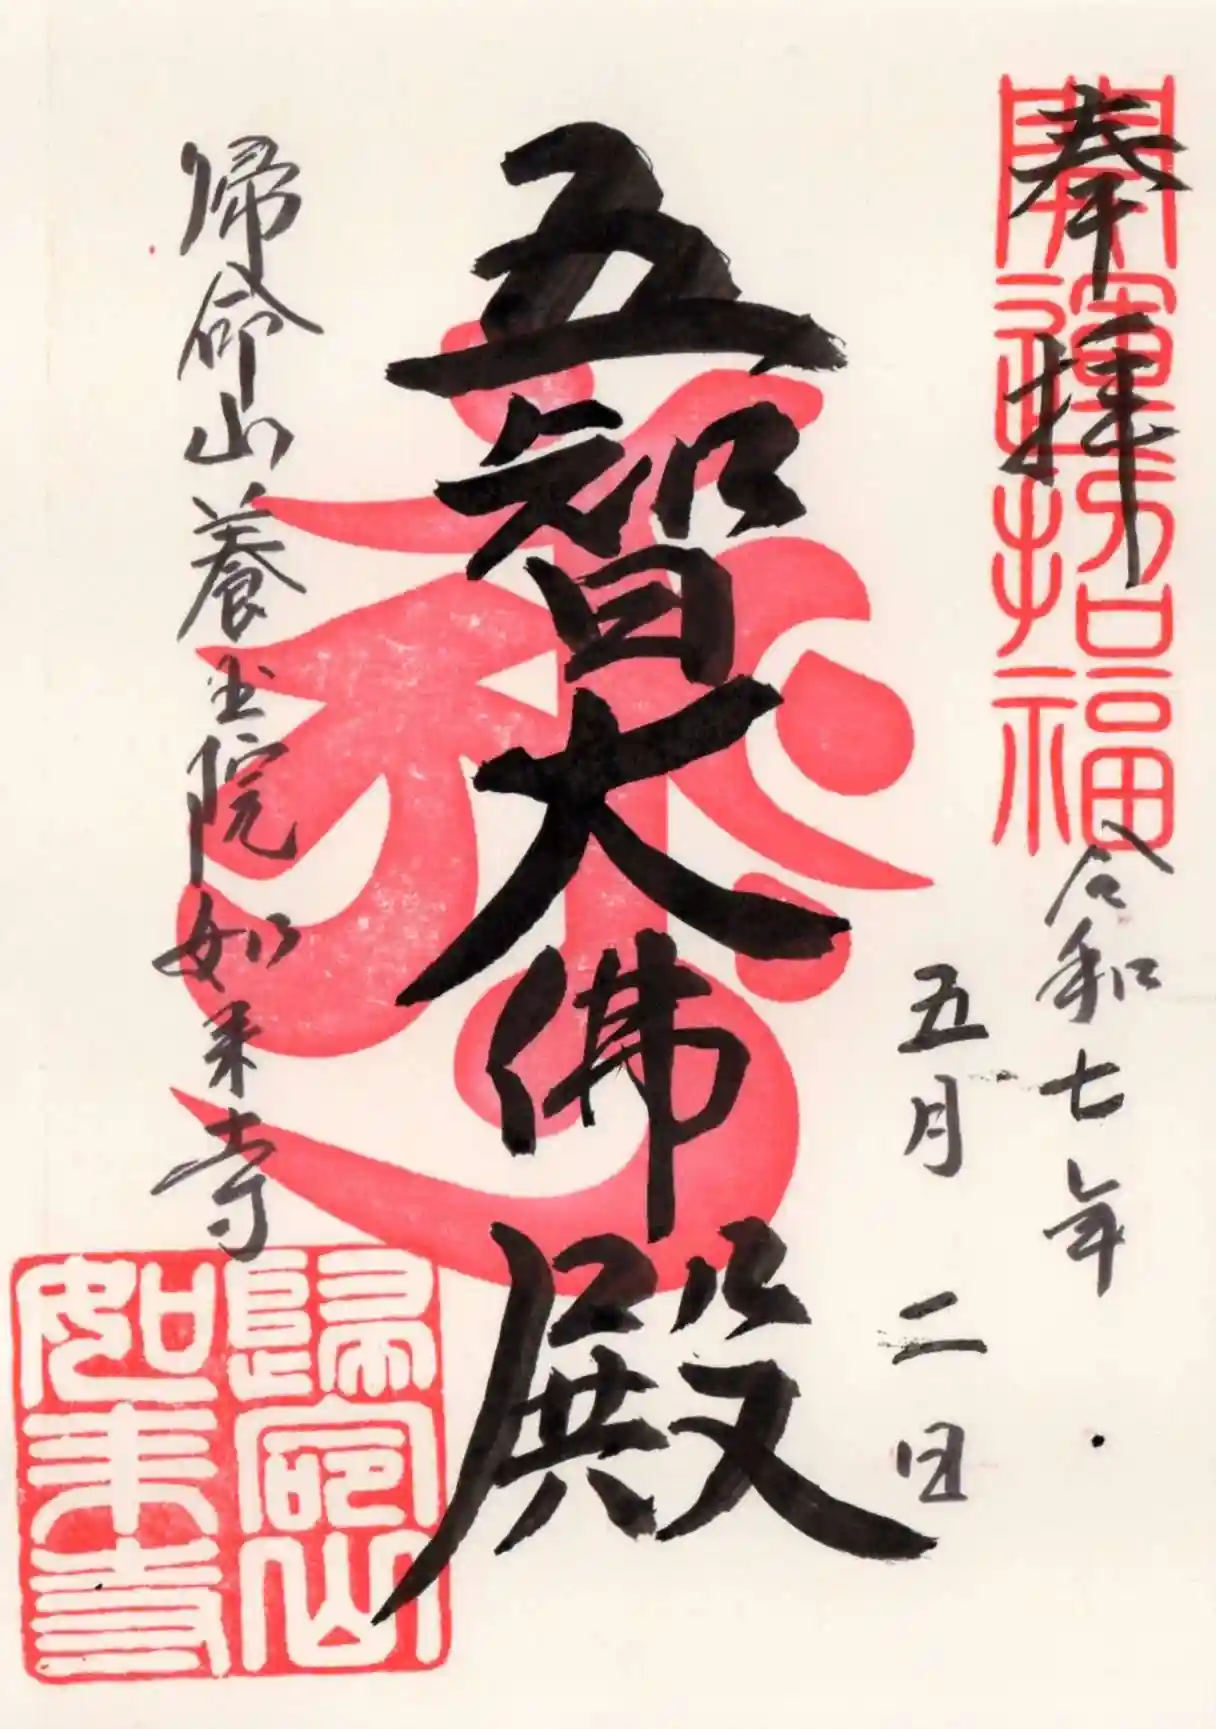 開運招福
奉拝
令和七年
五月二日
五智大佛殿
帰命山養国院如来寺
歸命山
如来寺